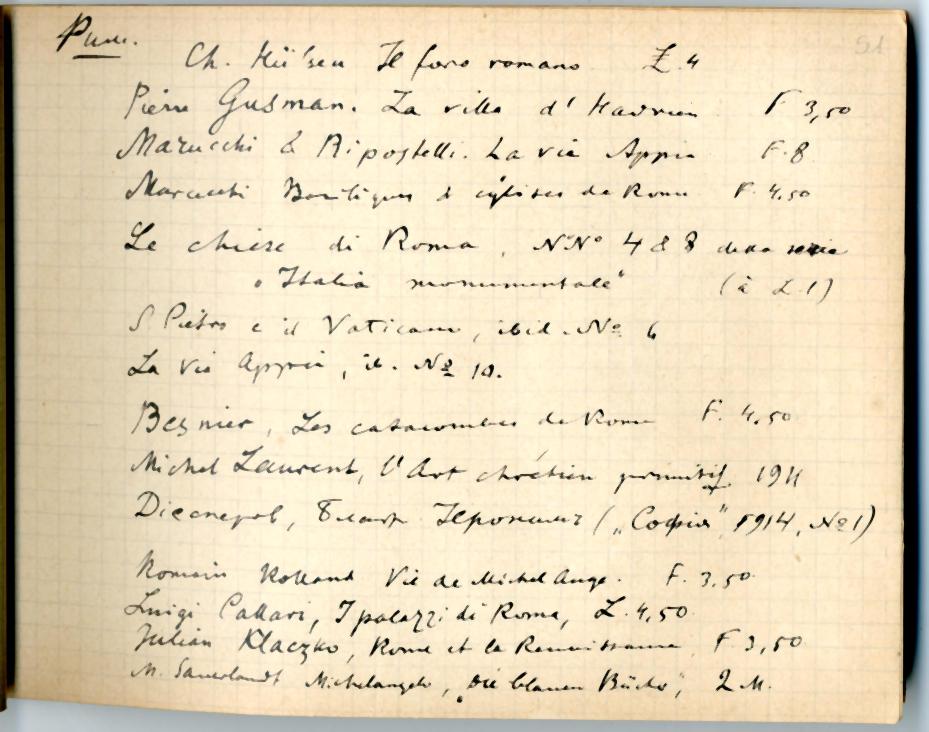 Рим. 51
Ch. Hülsen Il foro romano £.4
Pierre Gusman. La villa d'Hadrien F 3,50
Marucchi & Ripostelli. La via Appia F.8
Marucchi Basiliques & églises de Rome F. 4,50
Le chiese di Roma, NNº 4 & 8 della serie
„Italia monumentale" (à L.1)
S. Pietro e il Vaticano, ibid. Nº 6
La via Appia, ib. Nº 10.
Besnier, Les catacombes de Rome F. 4,50
Michel Laurent, l'Art chrétien primitif 1911
Диесперов, Блаж. Иероним („София", 1914, №1)
Romain Rolland Vie de Michel Ange. F. 3,50
Luigi Callari, I palazzi di Roma, L. 4,50
Julian Klaczko, Rome et la Renaissance F 3,50
M. Sauerlandt Michelangelo, „Die blauen Bücher", 2 M.